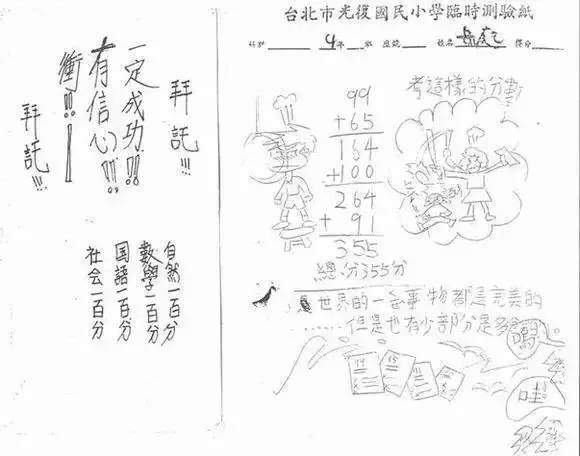 台北市光復國民小學臨時測驗紙
科目 4年 班 座號 姓名 得分
考這樣的分數
99
+65
164
+100
264
+ 91
355
總分355分
世界的一些事物都是完美的
......但是也有少部分是
嗚
哇
拜託!!!
一定成功!!
有信心!!!
衝!!!
拜託!!!
自然一百分
數學一百分
国語一百分
社会一百分